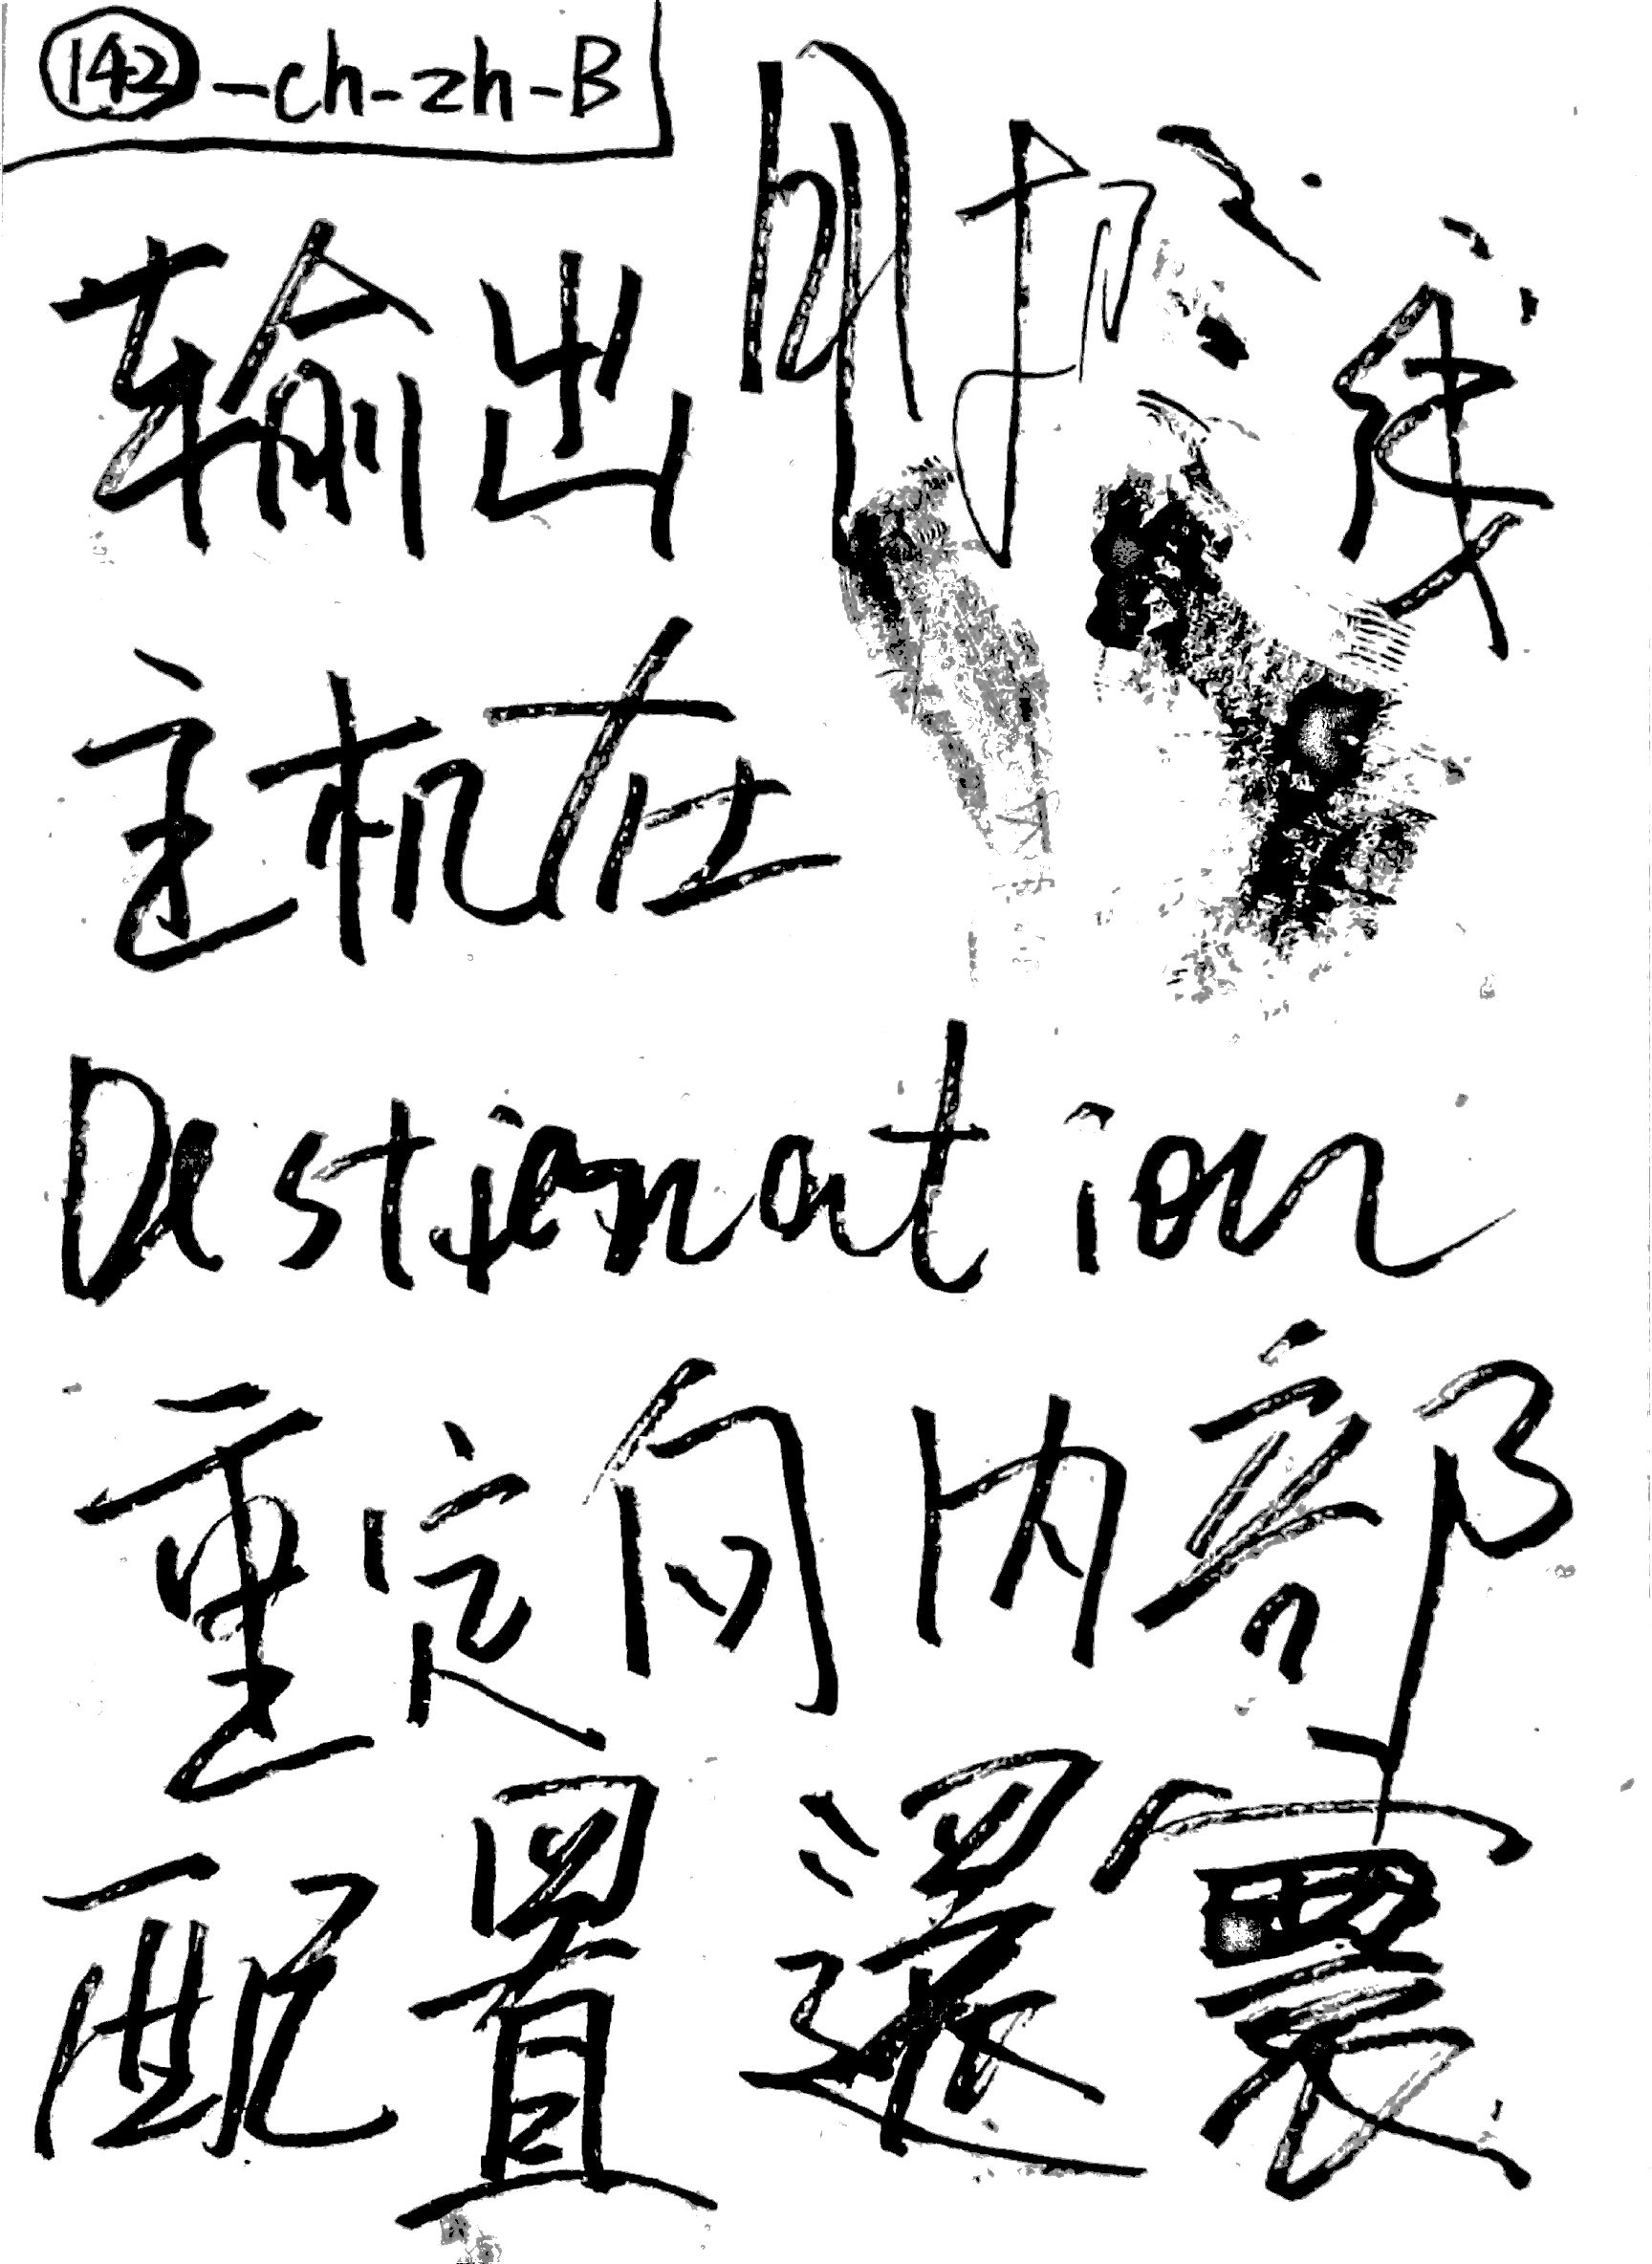 142-ch-zh-B
输出
主机在
Destination
重定向内部
配置還